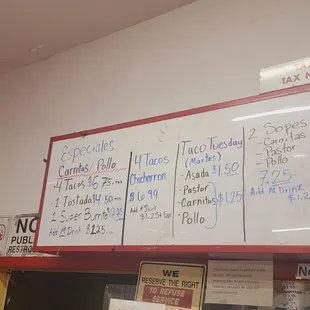 Especiales
Carnitas / Pollo
4 Tacos $6.75
1 Tostada $4.50
1 Super Burrito
Add M Drink $1.25
4 Tacos
Chicharron
$6.99
Add M Drink
$1.25
Taco Tuesday
(Martes)
- Asada $1.50
- Pastor
- Carnitas $1.25
- Pollo
2 Sopes
- Carnitas
- Pastor
- Pollo
7.25
Add M Drink
TAX N
NO
PUBLIC
RESTRO
WE
RESERVE THE RIGHT
TO REFUSE
SERVICE
NO